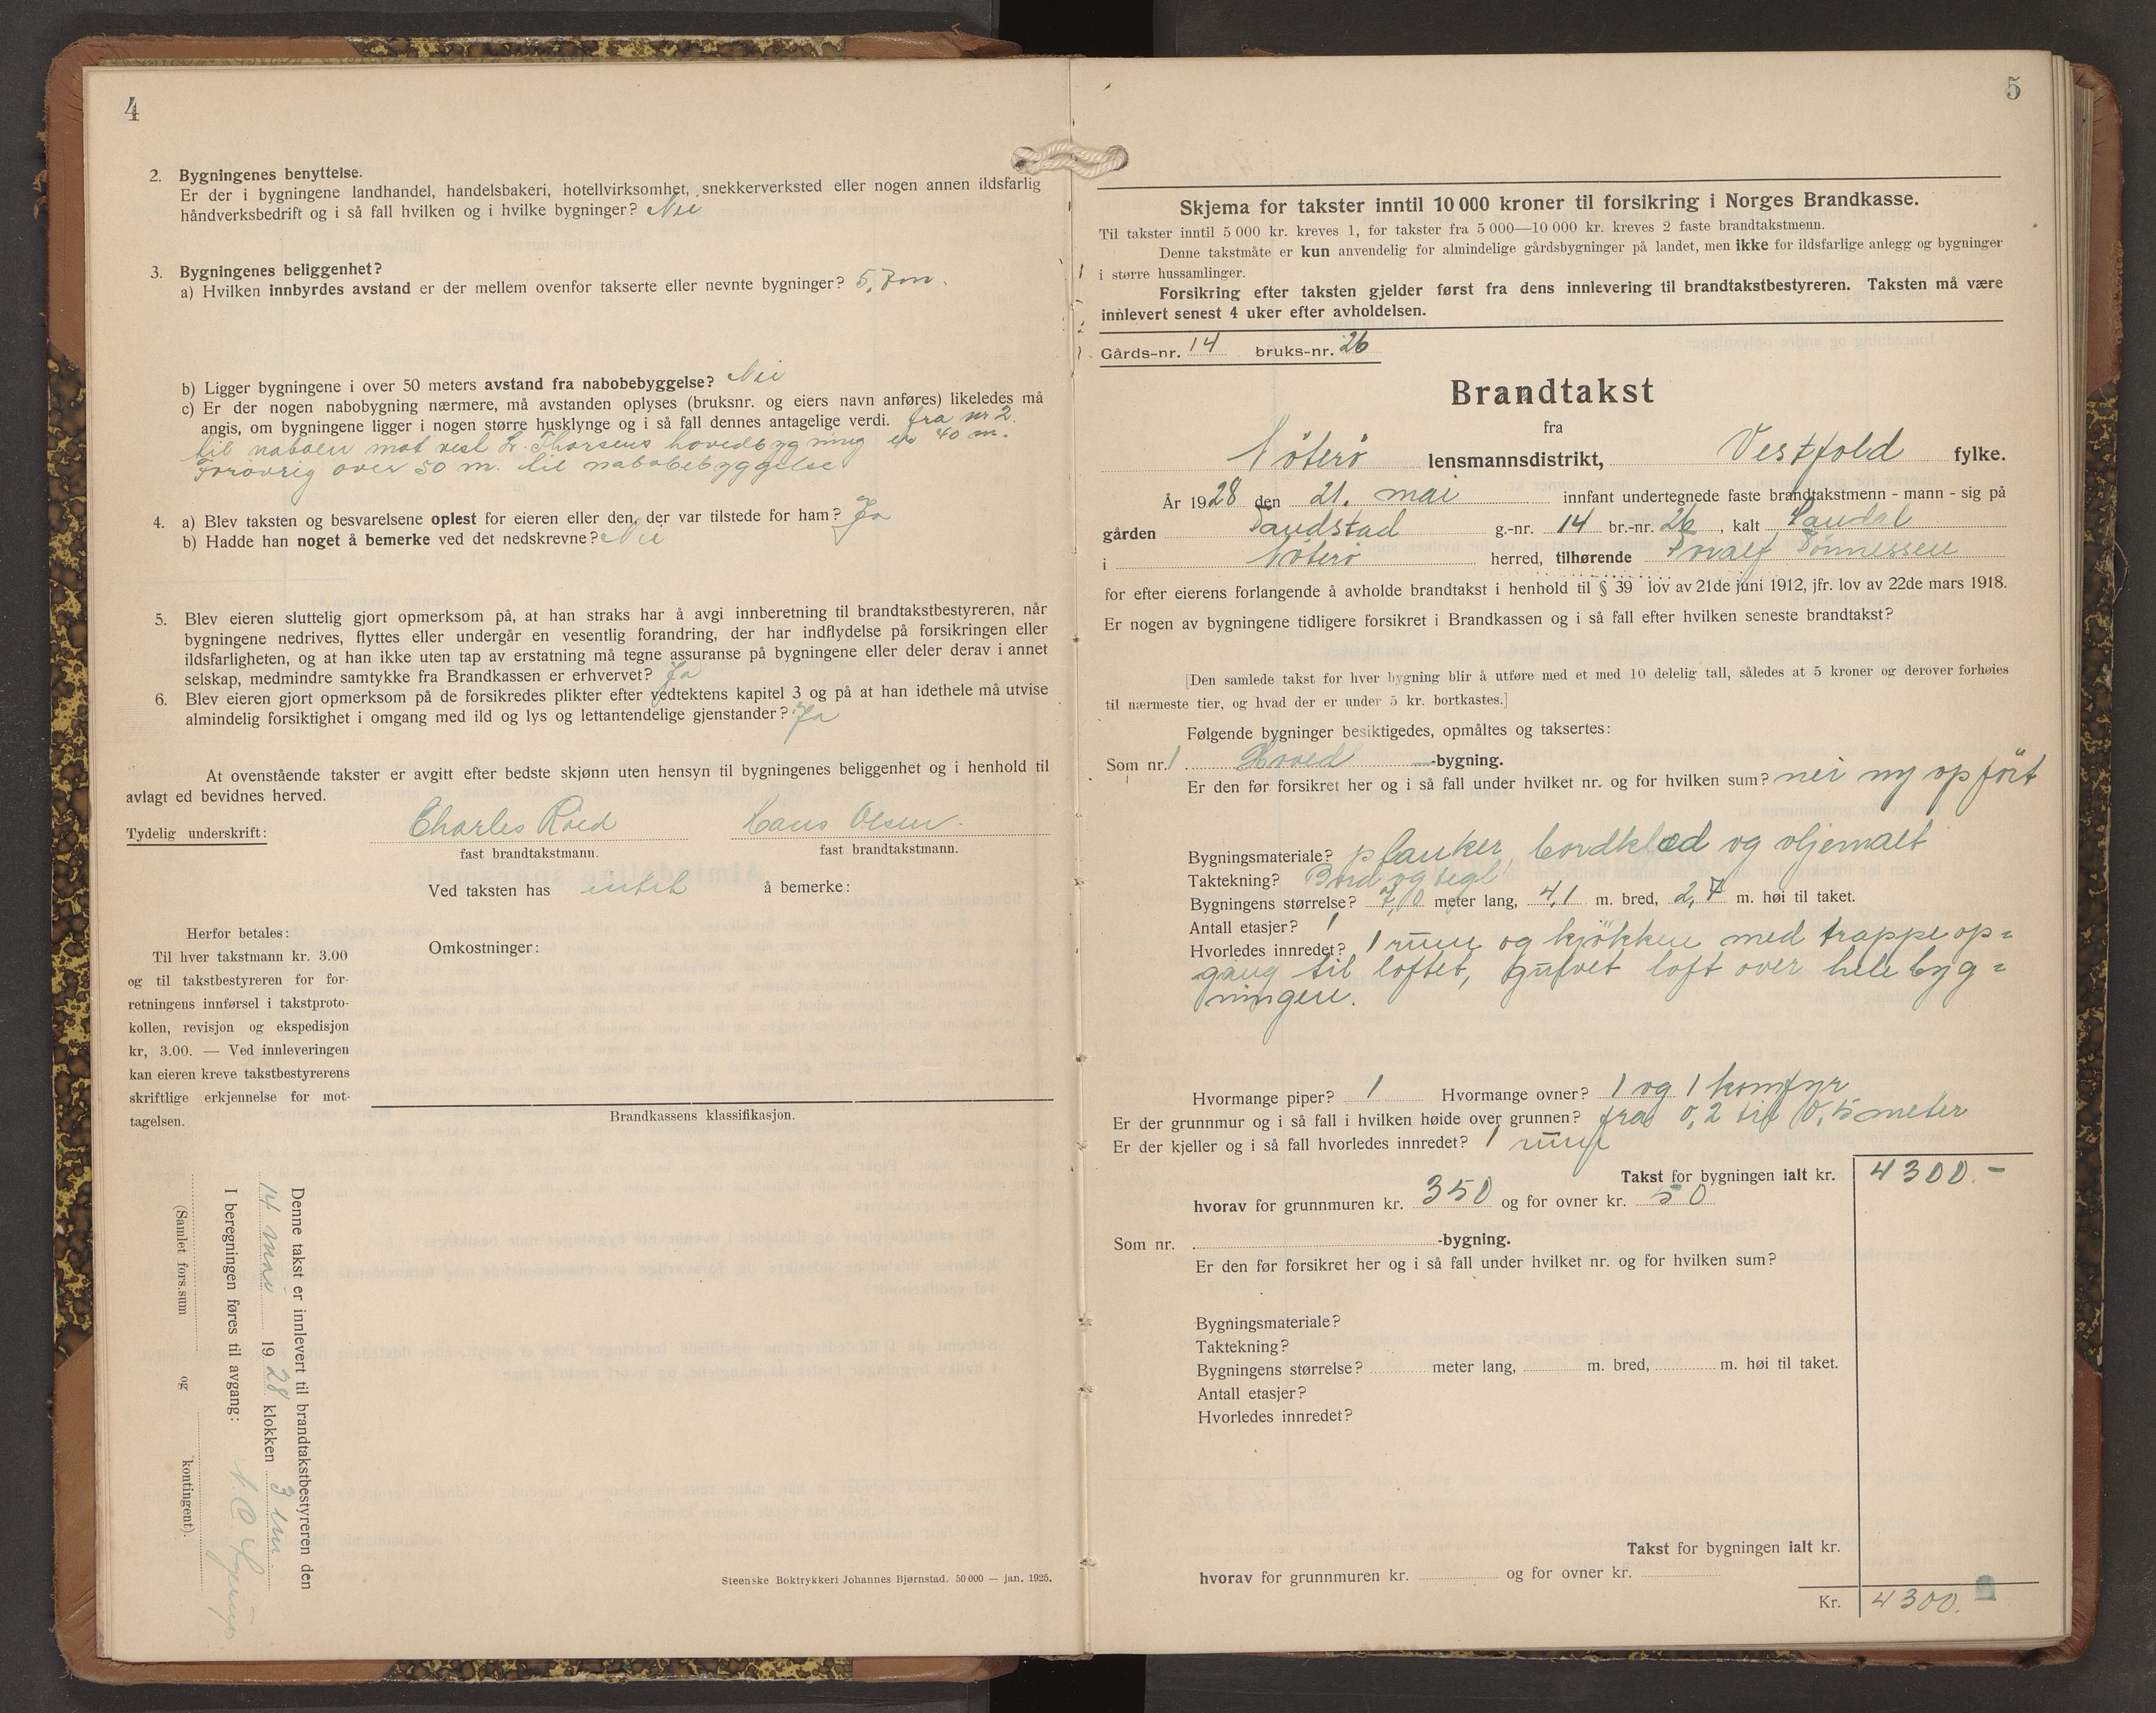 4
2. Bygningenes benyttelse.
Er der i bygningene landhandel, handelsbakeri, hotellvirksomhet, snekkerverksted eller nogen annen ildsfarlig
håndverksbedrift og i så fall hvilken og i hvilke bygninger? Nei
3. Bygningenes beliggenhet?
a) Hvilken innbyrdes avstand er der mellem ovenfor takserte eller nevnte bygninger? 5,7 m.
b) Ligger bygningene i over 50 meters avstand fra nabobebyggelse? Nei
c) Er der nogen nabobygning nærmere, må avstanden oplyses (bruksnr. og eiers navn anføres) likeledes må
angis, om bygningene ligger i nogen større husklynge og i så fall dennes antagelige verdi. fra nr 2.
til naboen mot vest L. Thorsens hovedbygning er 40 m.
Forøvrig over 50 m. til nabobebyggelse
4. a) Blev taksten og besvarelsene oplest for eieren eller den, der var tilstede for ham? Ja
b) Hadde han noget å bemerke ved det nedskrevne? Nei
5. Blev eieren sluttelig gjort opmerksom på, at han straks har å avgi innberetning til brandtakstbestyreren, når
bygningene nedrives, flyttes eller undergår en vesentlig forandring, der har indflydelse på forsikringen eller
ildsfarligheten, og at han ikke uten tap av erstatning må tegne assuranse på bygningene eller deler derav i annet
selskap, medmindre samtykke fra Brandkassen er erhvervet? Ja
6. Blev eieren gjort opmerksom på de forsikredes plikter efter vedtektens kapitel 3 og på at han idethele må utvise
almindelig forsiktighet i omgang med ild og lys og lettantendelige gjenstander? Ja
At ovenstående takster er avgitt efter bedste skjønn uten hensyn til bygningenes beliggenhet og i henhold til
avlagt ed bevidnes herved.
Tydelig underskrift: Charles Röed Hans Olsen.
fast brandtakstmann. fast brandtakstmann.
Ved taksten has intet å bemerke:
Herfor betales:
Til hver takstmann kr. 3.00
og til takstbestyreren for for-
retningens innførsel i takstproto-
kollen, revisjon og ekspedisjon
kr, 3.00. — Ved innleveringen
kan eieren kreve takstbestyrerens
skriftlige erkjennelse for mot-
tagelsen.
Omkostninger:
Brandkassens klassifikasjon.
Denne takst er innlevert til brandtakstbestyreren den
14 mai 1928 klokken 3 em.
I beregningen føres til avgang:
(Samlet fors.sum og kontingent).
Steenske Boktrykkeri Johannes Bjørnstad. 50 000 — jan. 1925.
5
Skjema for takster inntil 10 000 kroner til forsikring i Norges Brandkasse.
Til takster inntil 5 000 kr. kreves 1, for takster fra 5 000—10 000 kr. kreves 2 faste brandtakstmenn.
Denne takstmåte er kun anvendelig for almindelige gårdsbygninger på landet, men ikke for ildsfarlige anlegg og bygninger
i større hussamlinger.
Forsikring efter taksten gjelder først fra dens innlevering til brandtakstbestyreren. Taksten må være
innlevert senest 4 uker efter avholdelsen.
Gårds-nr. 14 bruks-nr. 26
Brandtakst
fra
Nöterö lensmannsdistrikt, Vestfold fylke.
År 1928 den 21. mai innfant undertegnede faste brandtakstmenn - mann - sig på
gården Sandstad g.-nr. 14 br.-nr. 26, kalt Laudal
i Nöterö herred, tilhørende Toralf Tönnessen
for efter eierens forlangende å avholde brandtakst i henhold til § 39 lov av 21de juni 1912, jfr. lov av 22de mars 1918.
Er nogen av bygningene tidligere forsikret i Brandkassen og i så fall efter hvilken seneste brandtakst?
[Den samlede takst for hver bygning blir å utføre med et med 10 delelig tall, således at 5 kroner og derover forhøies
til nærmeste tier, og hvad der er under 5 kr. bortkastes.]
Følgende bygninger besiktigedes, opmåltes og taksertes:
Som nr. 1 Hoved -bygning.
Er den før forsikret her og i så fall under hvilket nr. og for hvilken sum? nei ny opfört
Bygningsmateriale? planker, bordklæd og oljemalt
Taktekning? Bord og tegl
Bygningens størrelse? 7,0 meter lang, 4,1 m. bred, 2,7 m. høi til taket.
Antall etasjer? 1
Hvorledes innredet? 1 rum og kjökken med trappeop=
gang til loftet, gulvet loft over hele byg=
ningen.
Hvormange piper? 1 Hvormange ovner? 1 og 1 komfyr
Er der grunnmur og i så fall i hvilken høide over grunnen? fra 0,2 til 0,5 meter
Er der kjeller og i så fall hvorledes innredet? 1 rum
Takst for bygningen ialt kr. 4300.-
hvorav for grunnmuren kr. 350 og for ovner kr. 50
Som nr. -bygning.
Er den før forsikret her og i så fall under hvilket nr. og for hvilken sum?
Bygningsmateriale?
Taktekning?
Bygningens størrelse? meter lang, m. bred, m. høi til taket.
Antall etasjer?
Hvorledes innredet?
Takst for bygningen ialt kr.
hvorav for grunnmuren kr. og for ovner kr.
Kr. 4300.